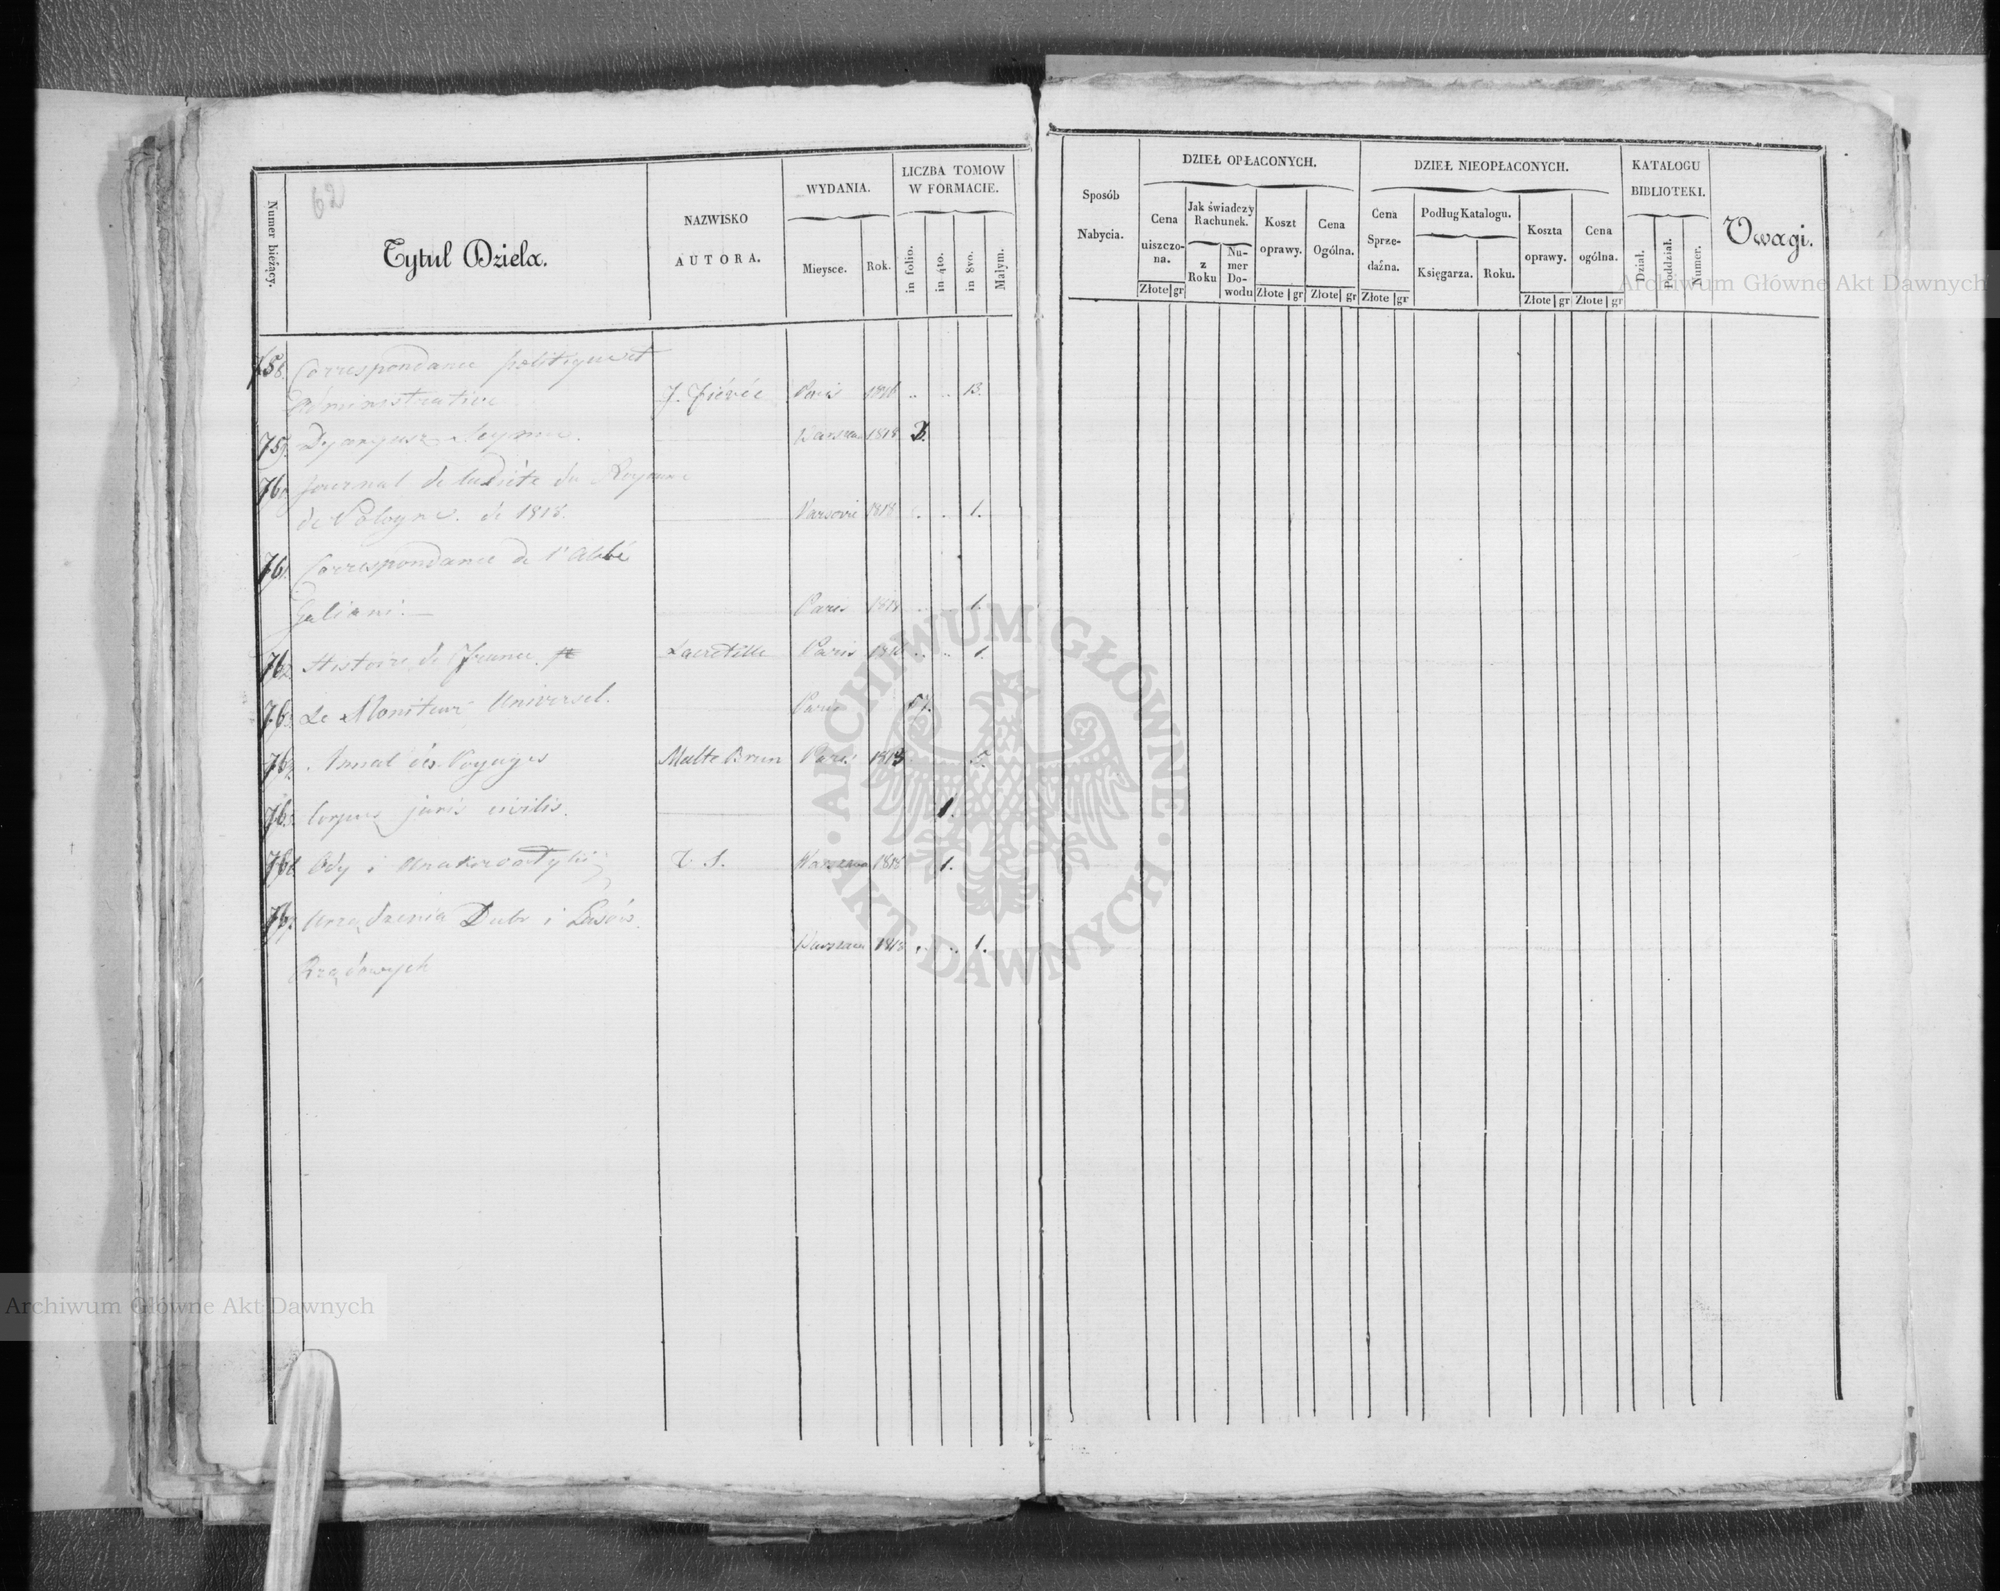 62
Numer bieżący.
Tytuł Dzieła.
NAZWISKO
AUTORA.
WYDANIA.
Mieysce.
Rok.
LICZBA TOMOW
W FORMACIE.
in folio.
in 4to.
in 8vo.
Małym.
Sposób
Nabycia.
DZIEŁ OPŁACONYCH.
Cena
uiszczo-
na.
Jak świadczy
Rachunek.
z
Roku
Nu-
mer
Do-
wodu
Koszt
oprawy.
Cena
Ogólna.
Złote gr
Złote gr
Złote gr
DZIEŁ NIEOPŁACONYCH.
Cena
Sprze-
daźna.
Podług Katalogu.
Księgarza.
Roku.
Koszta
oprawy.
Cena
ogólna.
Złote gr
Złote gr
Złote gr
KATALOGU
BIBLIOTEKI.
Dział.
Poddział.
Numer.
Uwagi.
758. Correspondance politique et
Administrative J. Fiévée Paris 1816 .. .. 13.
759. Dyaryusz Seymu. Warszawa 1818
760 Journal de la Diéte du Royaume
de Pologne. de 1818. Varsovie 1818 .. .. 1.
761. Correspondance de l'Abbé
Galiani. — Paris 1818 .. .. 1.
762 Histoire de France Lacretelle Paris 1816 .. .. 1.
763 Le Moniteur Universel. Paris
764. Annal des Voyages Malte Brun Paris 5.
765 Corpus juris civilis. 1.
766 Ody i Anakreontyki Warszawa 1818 1.
767. Urządzenia Dubr i Lasów
Rządowych Warszawa 1818 .. .. 1.
ARCHIWUM GŁÓWNE AKT DAWNYCH
Archiwum Główne Akt Dawnych
Archiwum Główne Akt Dawnych